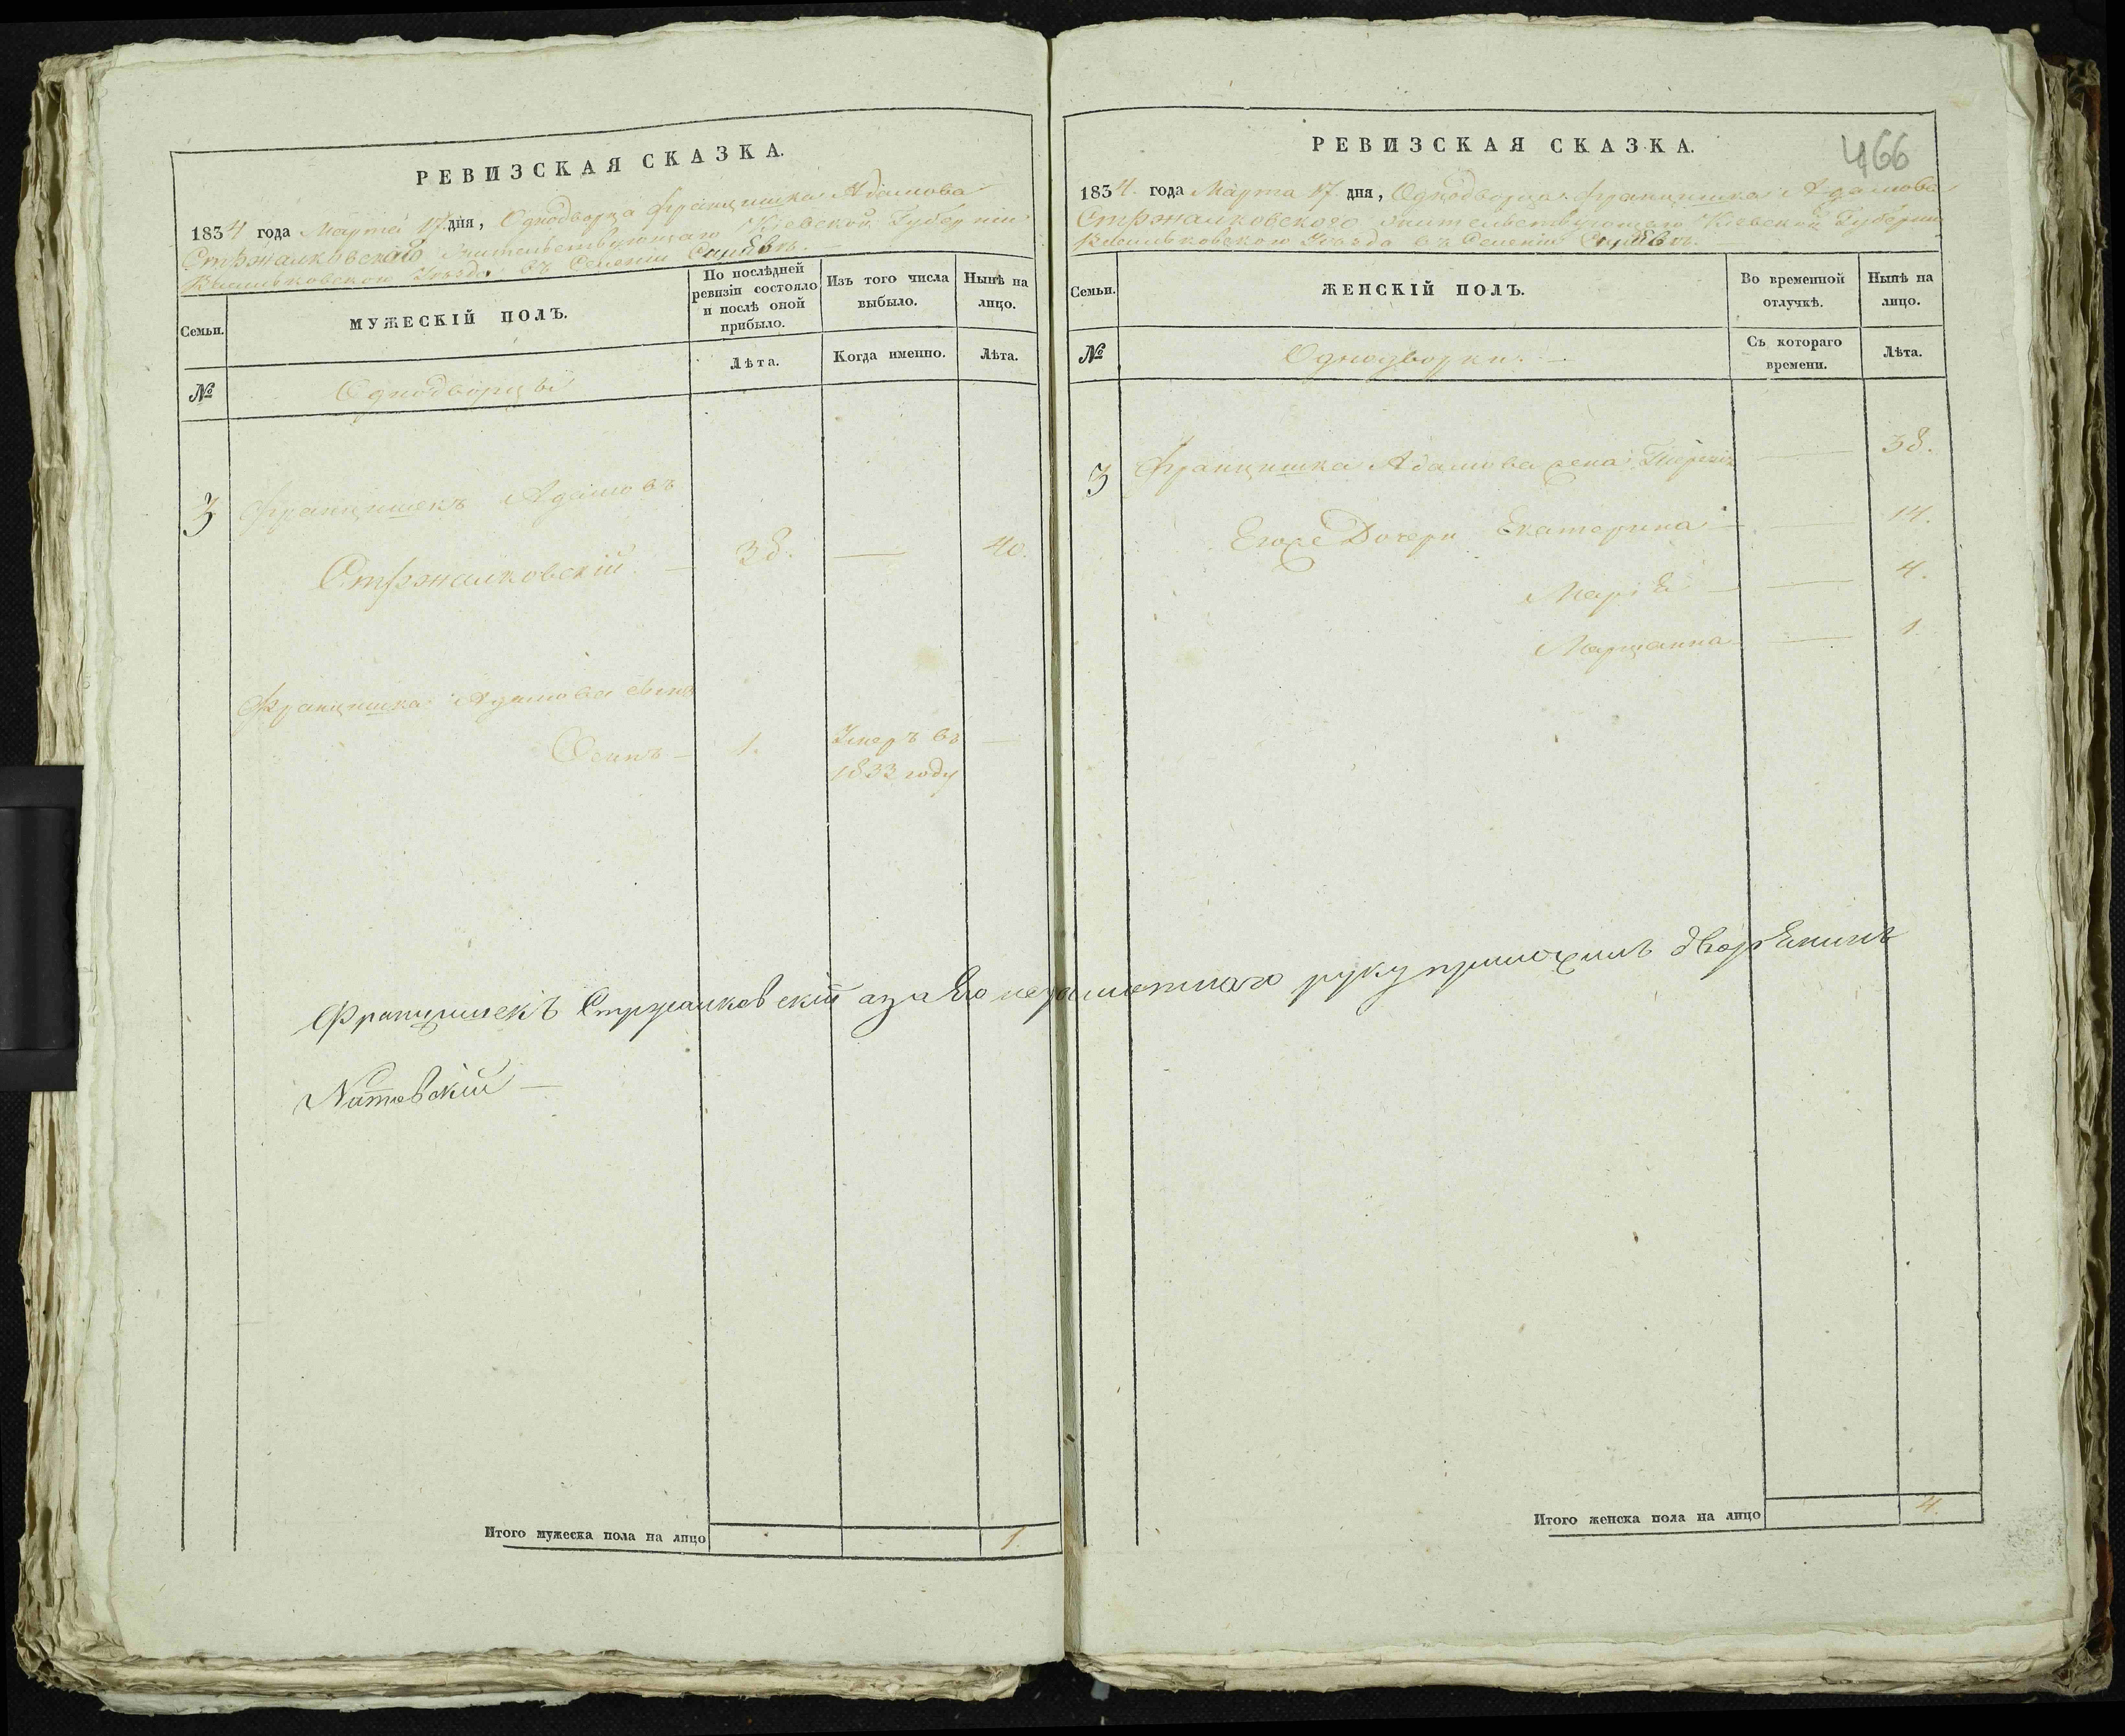 РЕВИЗСКАЯ СКАЗКА.
1834 года Марта 17 дня, Однодворца Францишка Адамова
Стржалковскаго жительствующаго Кіевской Губерніи
Васильковскаго Уѣзда въ Селеніи
Семьи.
МУЖЕСКІЙ ПОЛЪ.
По послѣдней ревизіи состояло и послѣ оной прибыло.
Изъ того числа выбыло.
Нынѣ на лицо.
№
Однодворцы
Лѣта.
Когда именно.
Лѣта.
3 Францишекъ Адамовъ
Стржалковскій — 38. — 40.
Францишка Адамова сынъ
Осипъ — 1. Умеръ въ —
1833 году
Францишекъ Стржалковскій а за его неграмотнаго руку приложилъ дворянинъ
Итого мужеска пола на лицо 1.
466
РЕВИЗСКАЯ СКАЗКА.
1834. года Марта 17. дня, Однодворца Францишка Адамова
Стржалковскаго жительствующаго Кіевской Губерніи
Васильковскаго Уѣзда въ Селеніи
Семьи.
ЖЕНСКІЙ ПОЛЪ.
Во временной отлучкѣ.
Нынѣ на лицо.
№
Однодворки. —
Съ котораго времени.
Лѣта.
3 Францишка Адамова жена — 38.
Егоже Дочери Екатерина — — 14.
Марія — — 4.
Маріанна — 1.
Итого женска пола на лицо 4.